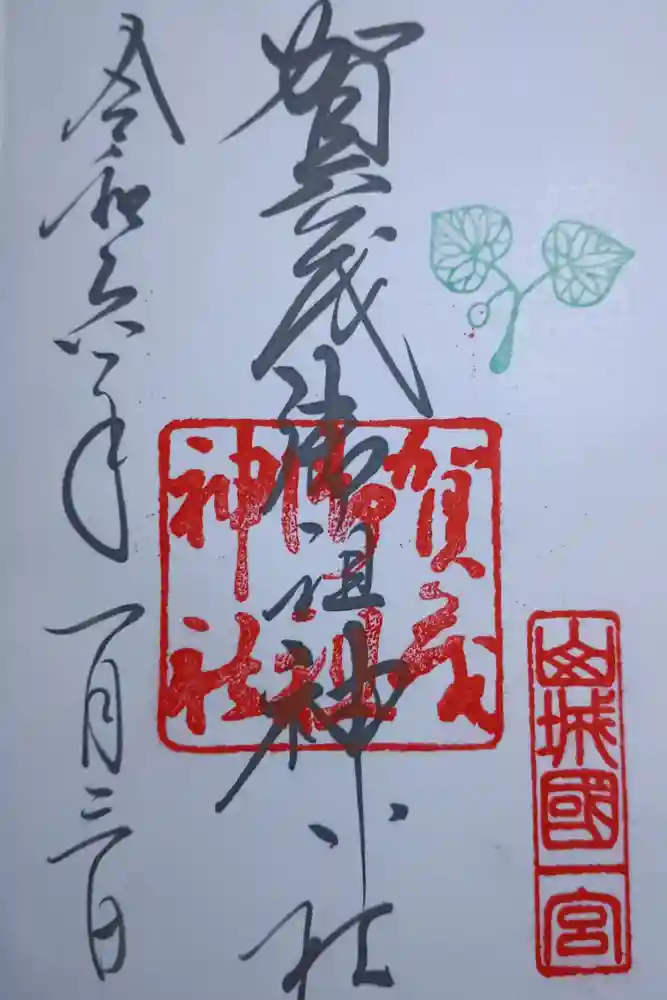 山城國一宮
賀茂御祖神社
賀茂
御祖
神社
令和六年一月三日